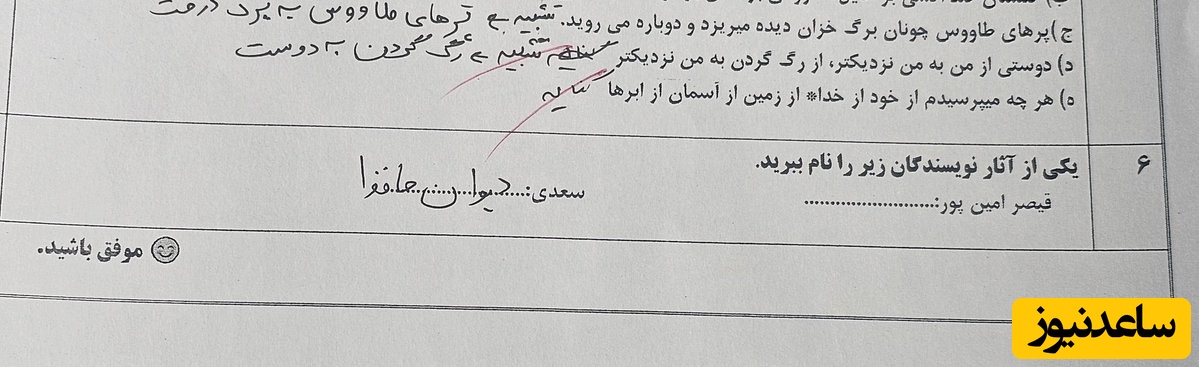 ج)پرهای طاووس چونان برگ خزان دیده میریزد و دوباره می روید. تشبیه پرهای طاووس به برگ درخت
د) دوستی از من به من نزدیکتر، از رگ گردن به من نزدیکتر تشبیه رگ گردن به دوست
ه) هر چه میپرسیدم از خود از خدا* از زمین از آسمان از ابرها کنایه
۶ یکی از آثار نویسندگان زیر را نام ببرید.
قیصر امین پور:.......................... سعدی: دیوان حافظ
موفق باشید.
ساعدنیوز